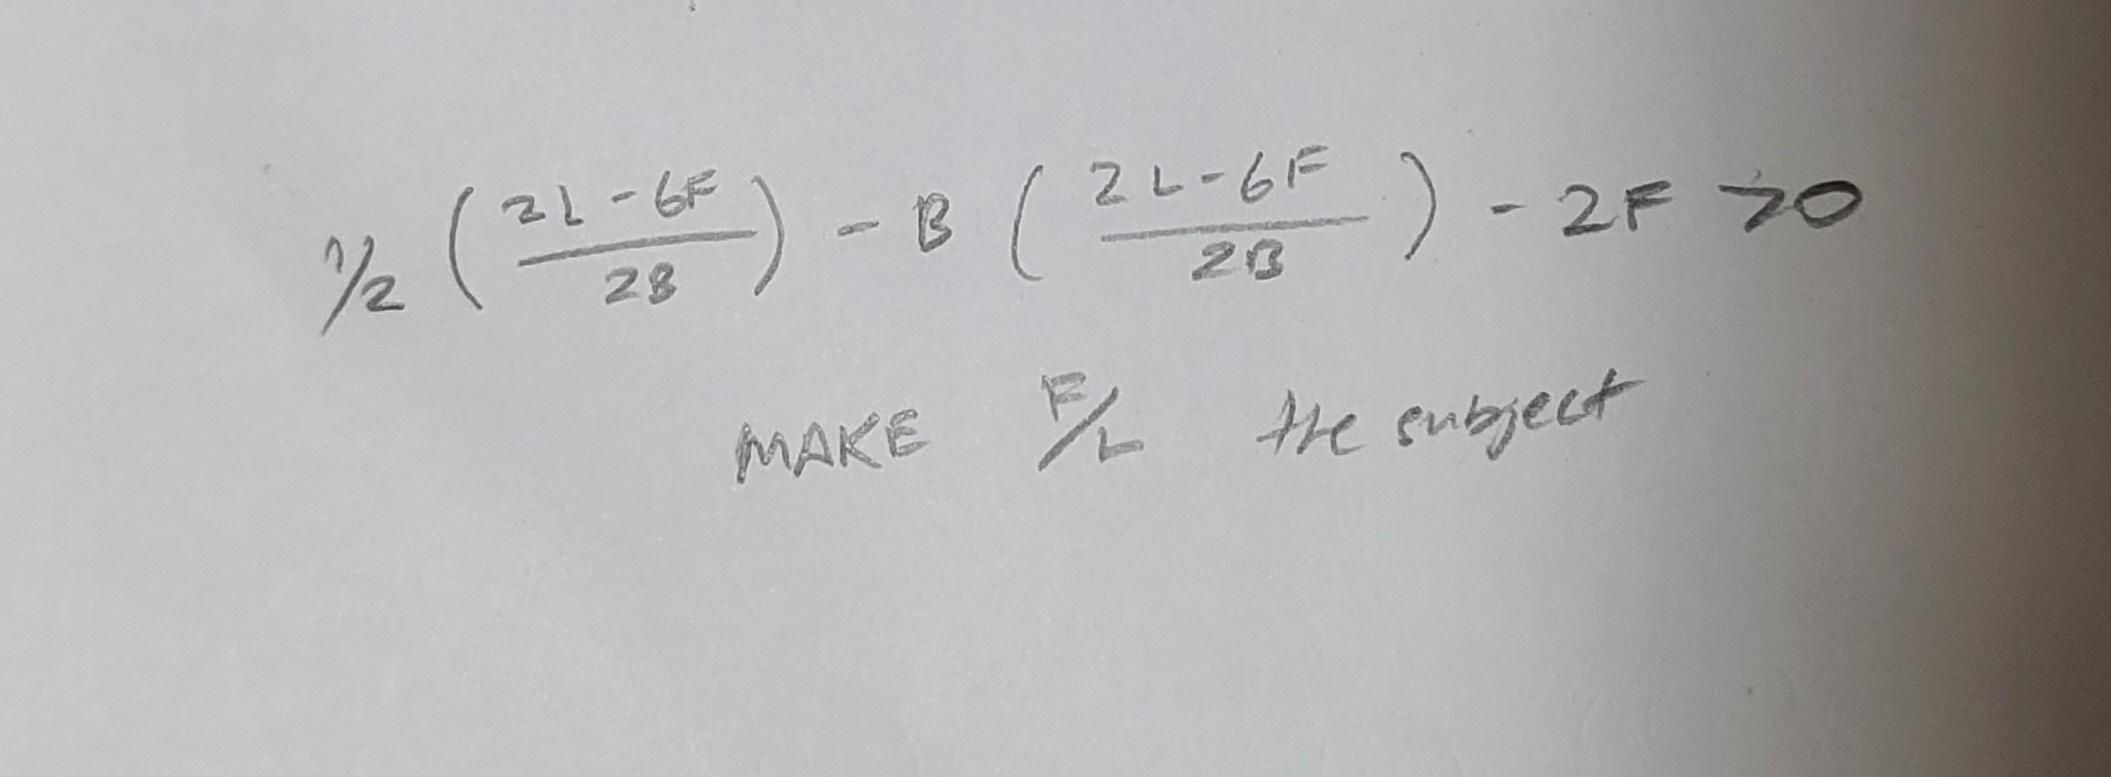 1/2 (2L-6F/2B) - B (2L-6F/2B) - 2F >0
MAKE F/L the subject